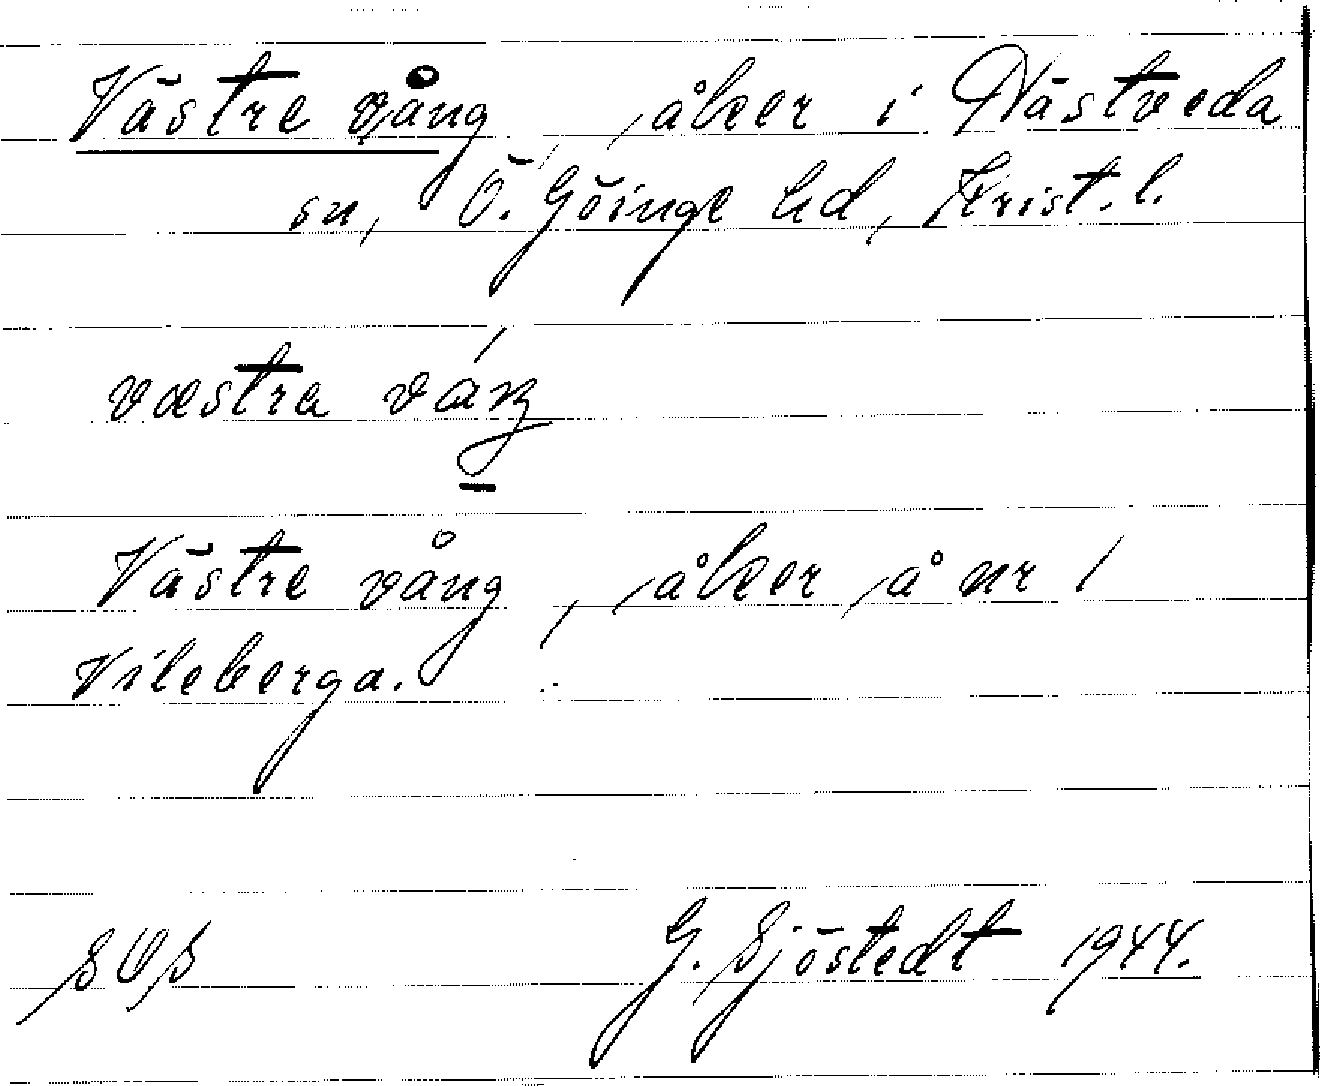 Västre vång, åker i Nästveda
sn, Ö. Göinge hd, Krist. l.
væstra váŋ
Västre vång, åker å nr 1
Vileberga.
SOS G. Sjöstedt 1944.